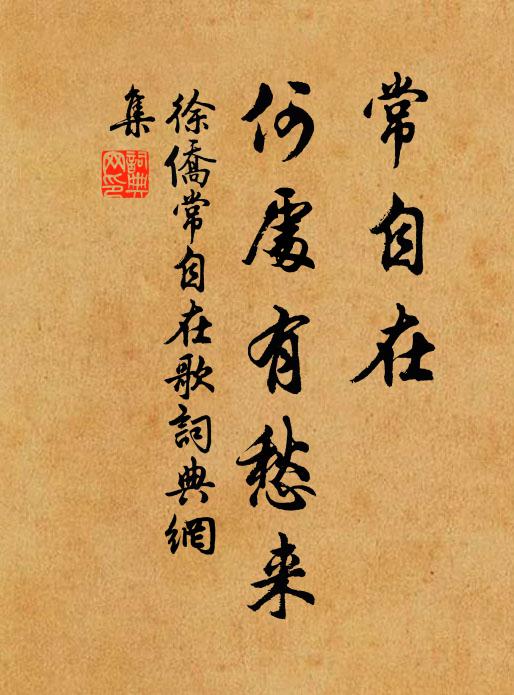 常自在
何處有愁来
徐僑常自在歌詞典網
集
詞典
网印